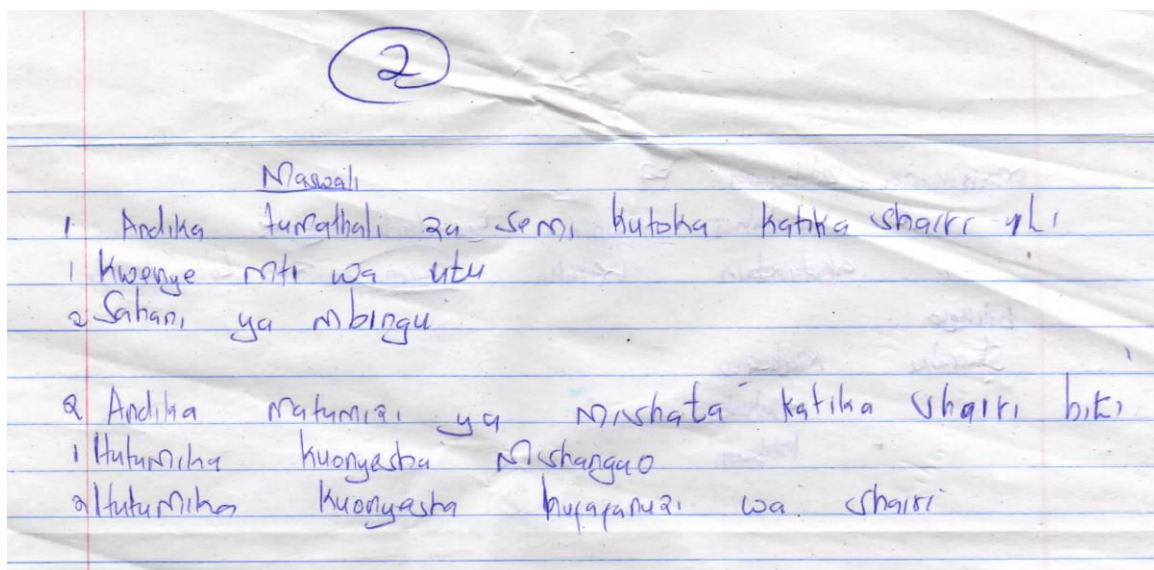 2
Maswali
1 Andika tumathali za semi kutoka katika shairi hili
1 Kwenye mti wa utu
2 Sahani ya mbingu
2 Andika matumizi ya mishata katika shairi hiki
1 Hutumika kuonyesha mshangao
2 Hutumika kuonyesha wa shairi